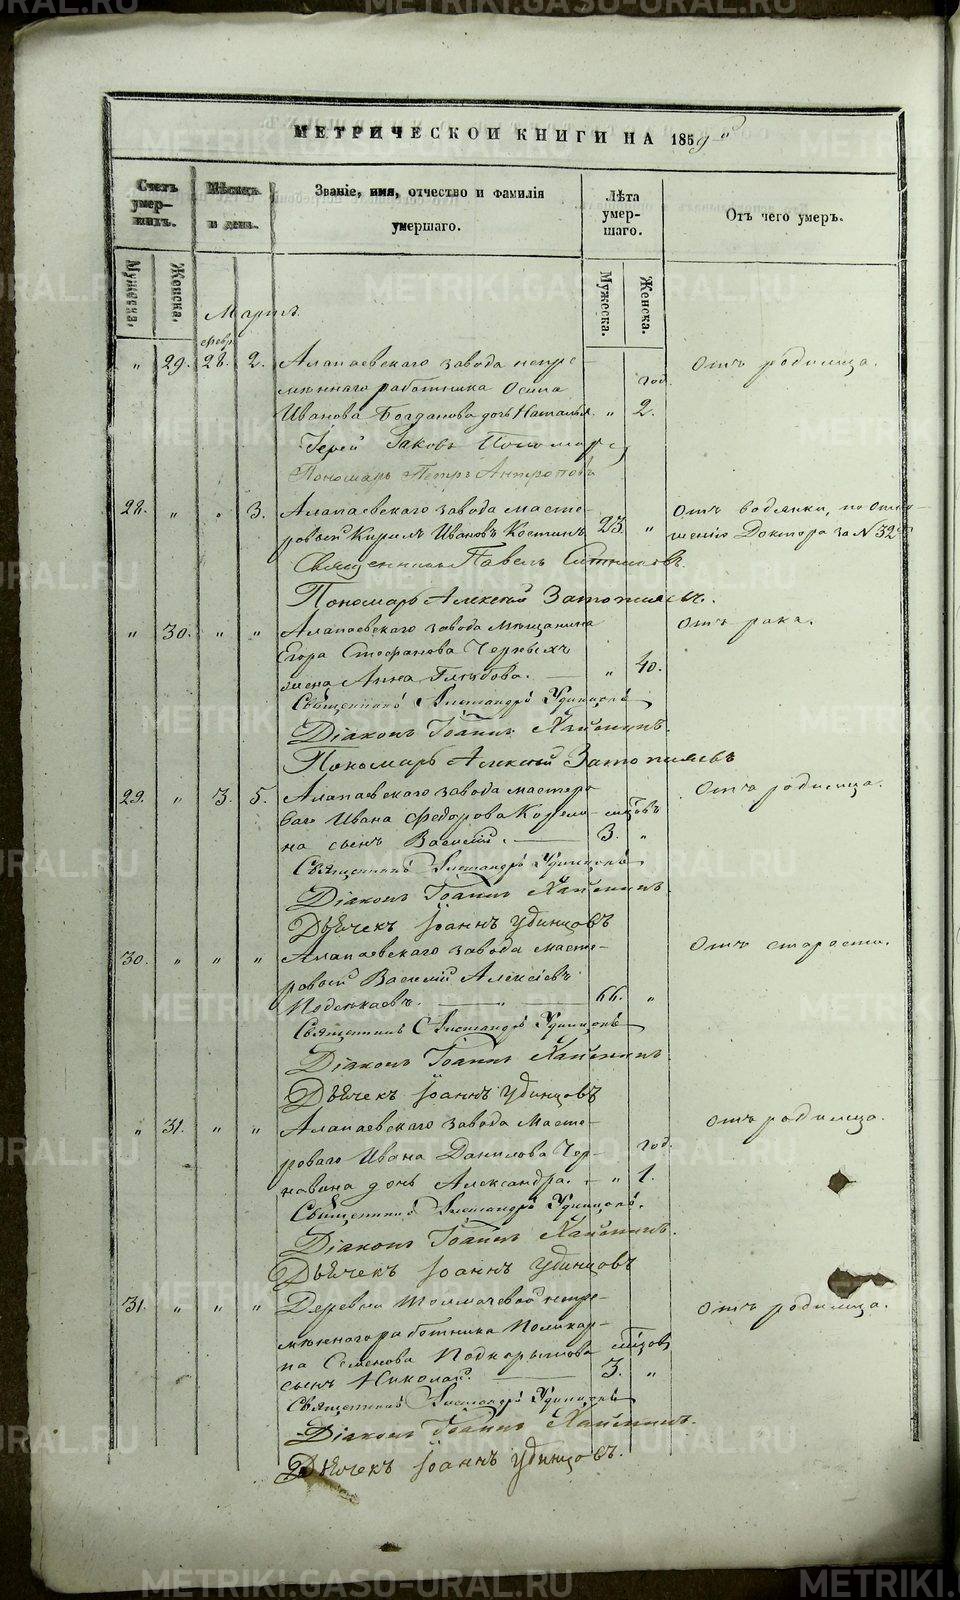 МЕТРИЧЕСКОЙ КНИГИ НА 1859 й
Счетъ умер- шихъ.
Мѣсяцъ и день.
Званіе, имя, отчество и фамилія умершаго.
Лѣта умер- шаго.
Отъ чего умеръ.
Мужеска.
Женска.
Мужеска.
Женска.
Мартъ
февр.
" 29. 28. 2. Алапаевскаго завода непре- Отъ родимца.
мѣннаго работника Осипа год.
Иванова Богданова дочь Наталья. " 2.
Іерей Іаковъ Пономаревъ
Пономарь Петръ Антроповъ
28. " " 3. Алапаевскаго завода масте- Отъ водянки, по отно-
ровой Кирилъ Ивановъ Костинъ 23. " шенію Доктора за N 32
Священникъ Павелъ Ситниковъ.
Пономарь Алексій Затопляевъ.
" 30. " " Алапаевскаго завода мѣщанина Отъ рака.
Егора Стефанова Черныхъ
жена Анна Глѣбова. " 40.
Священникъ Александръ Удинцовъ
Діаконъ Іоаннъ
Пономарь Алексій Затопляевъ
29. " 3. 5. Алапаевскаго завода мастеро- Отъ родимца.
ваго Ивана Федорова мѣсяцовъ
на сынъ Василій. 3. "
Священникъ Александръ Удинцовъ
Діаконъ Іоаннъ
Дьячекъ Іоаннъ Удинцовъ
30. " " " Алапаевскаго завода масте- Отъ старости.
ровой Василій Алексіевъ
66. "
Священникъ Александръ Удинцовъ
Діаконъ Іоаннъ
Дьячекъ Іоаннъ Удинцовъ
" 31. " " Алапаевскаго завода Масте- Отъ родимца.
роваго Ивана Данилова Чер- год.
навина дочь Александра. " 1.
Священникъ Александръ Удинцовъ.
Діаконъ Іоаннъ
Дьячекъ Іоаннъ Удинцовъ
31. " " " Деревни Толмачевой непре- Отъ родимца.
мѣннаго работника Поликар-
па Семенова Подкорытова мѣсяцов
сынъ Николай. 3. "
Священникъ Александръ Удинцовъ
Діаконъ Іоаннъ
Дьячекъ Іоаннъ Удинцовъ.
METRIKI.GASO-URAL.RU